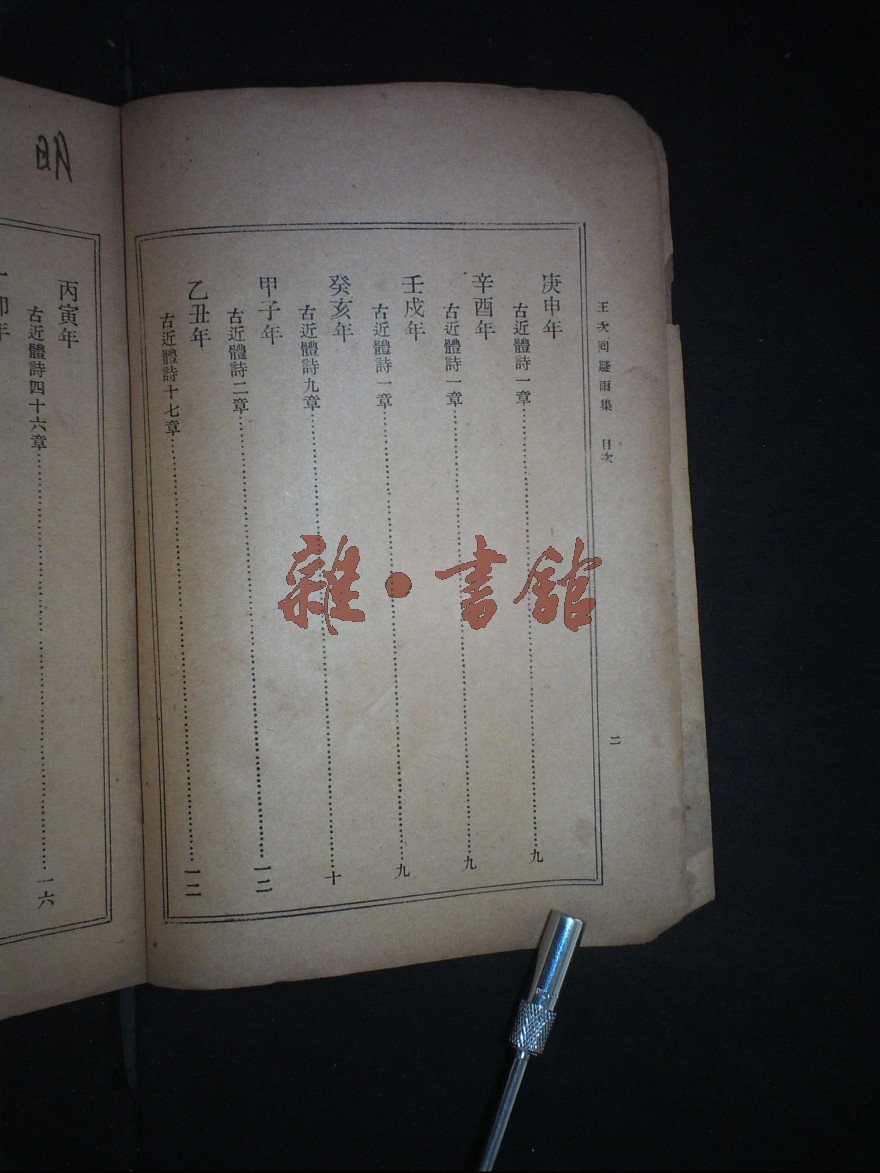 王次回疑雨集 目次
二
庚申年
古近體詩一章……九
辛酉年
古近體詩一章……九
壬戌年
古近體詩一章……九
癸亥年
古近體詩九章……十
甲子年
古近體詩二章……一二
乙丑年
古近體詩十七章……一二
丙寅年
古近體詩四十六章……一六
卯年
明
雜·書館